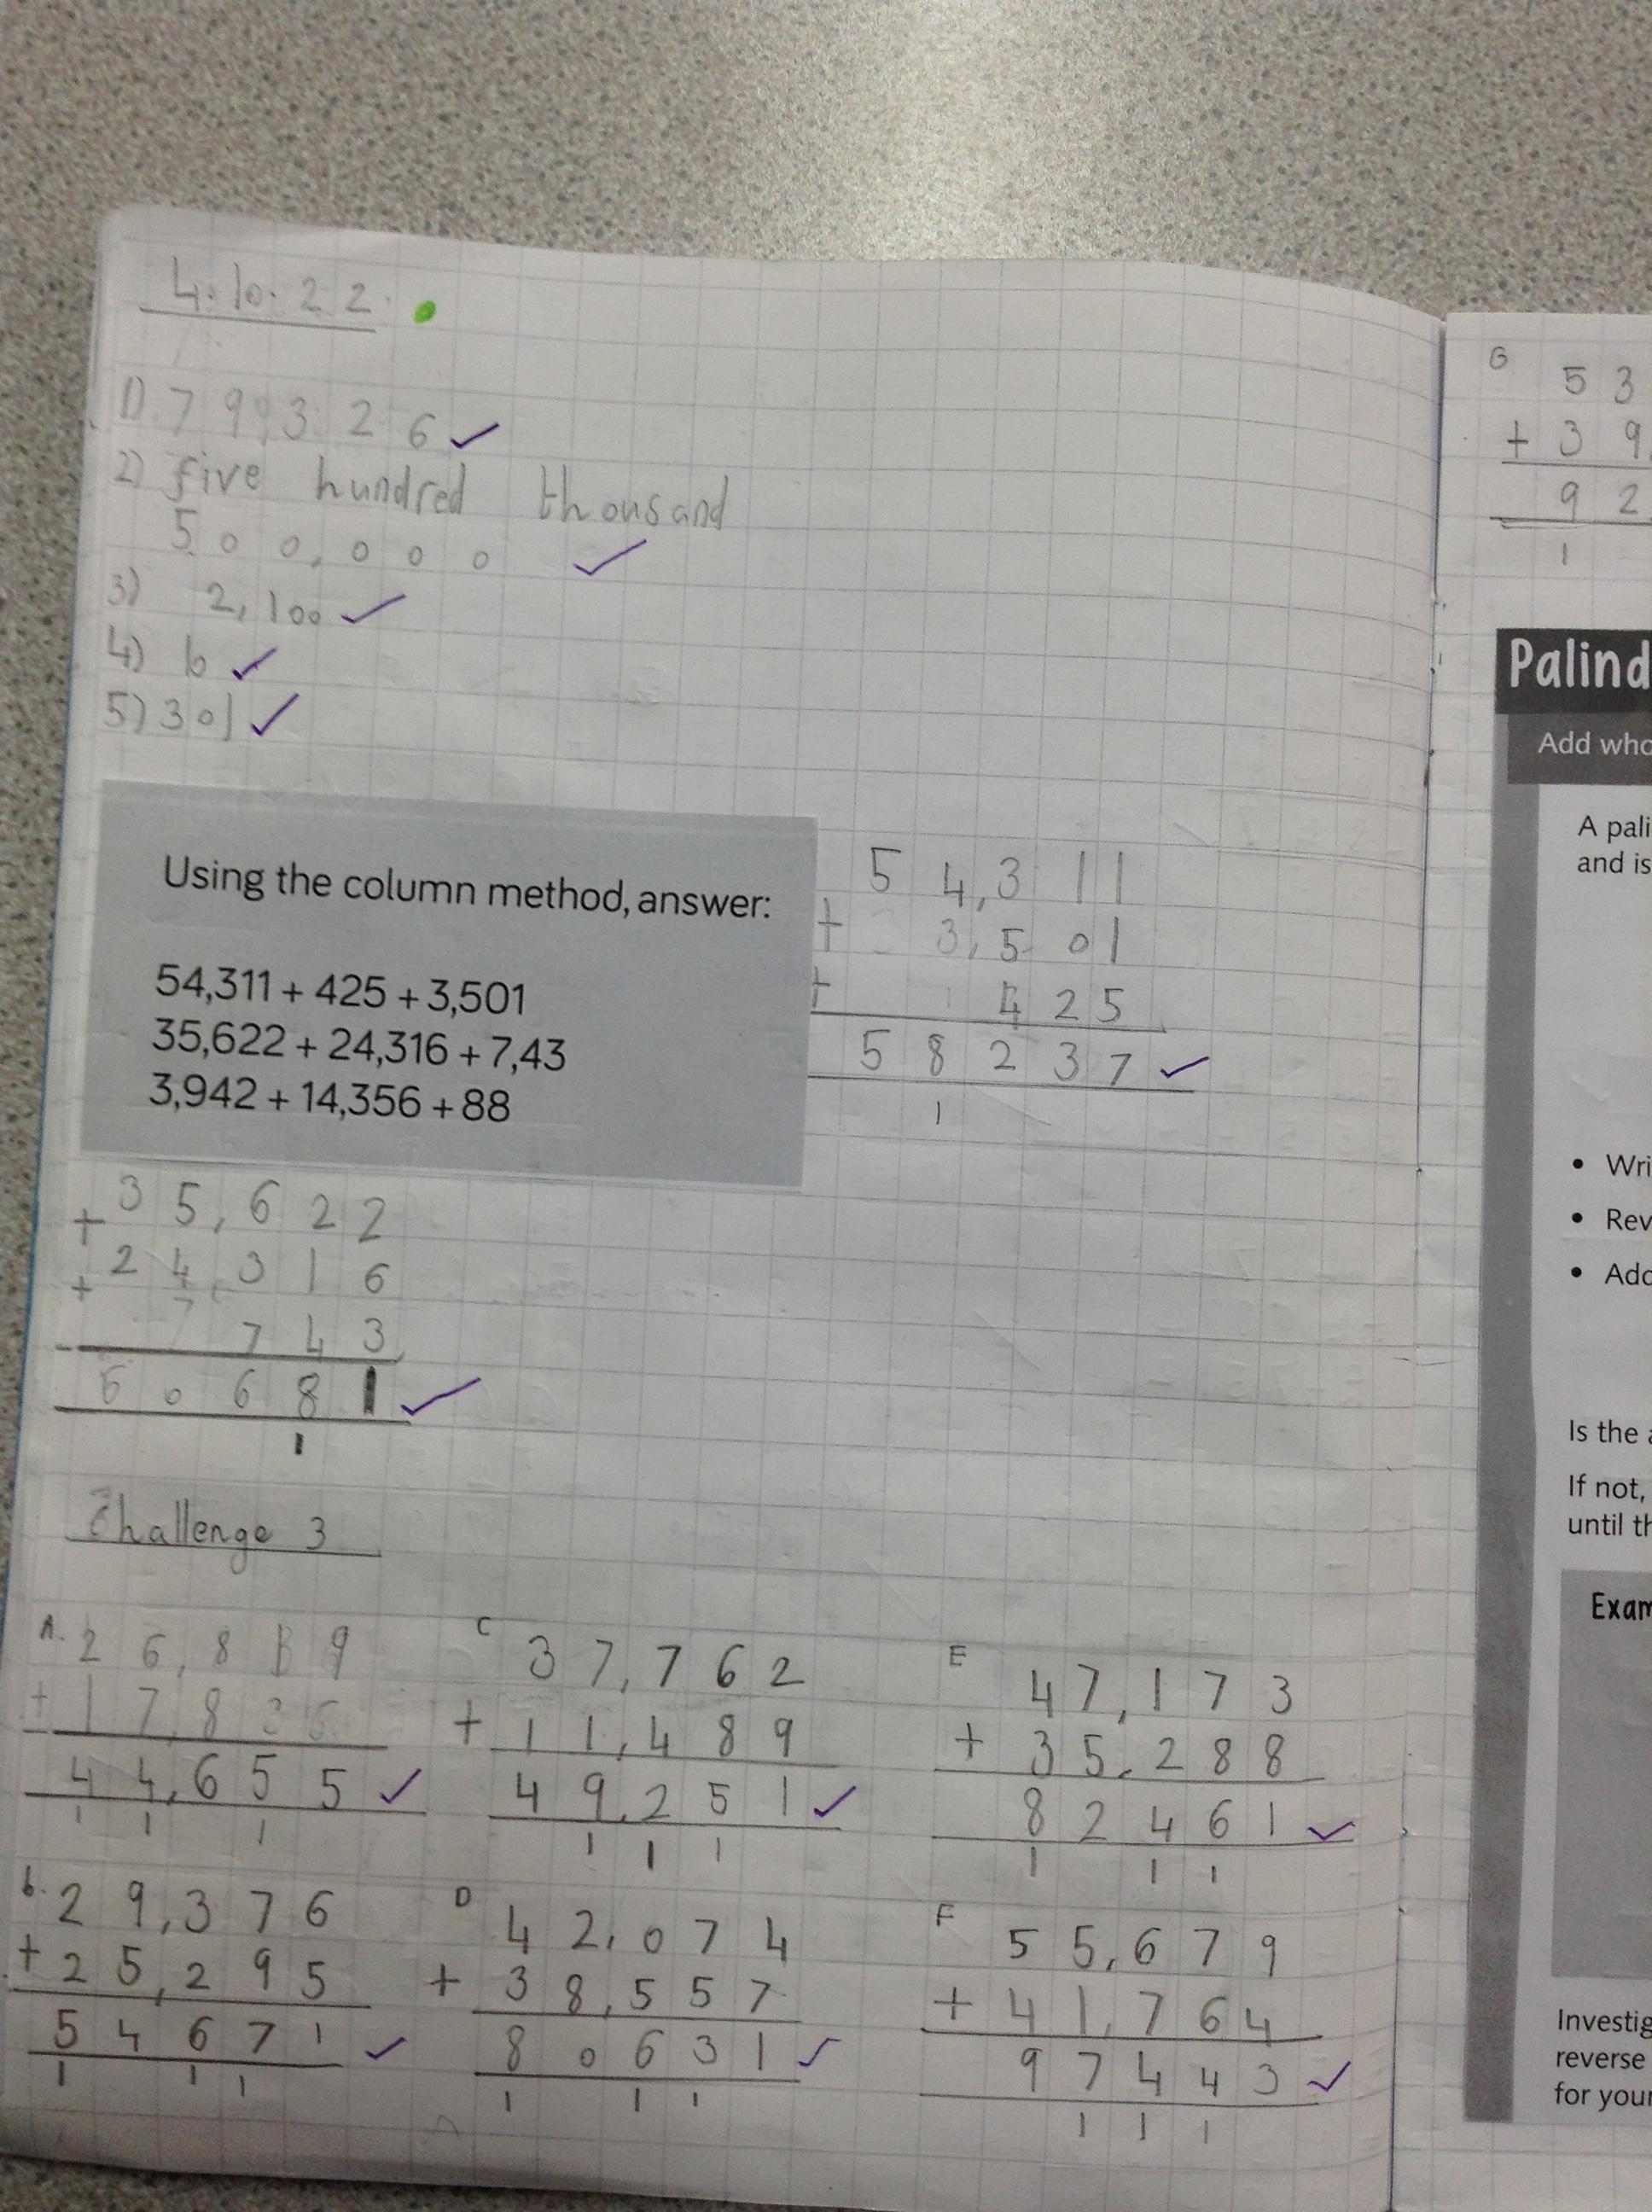 4.10.22.
1) 79,326
2) five hundred thousand
500,000
3) 2,100
4) 6
5) 301
Using the column method, answer:
54,311 + 425 + 3,501
35,622 + 24,316 + 7,43
3,942 + 14,356 + 88
54,311
+ 3,501
+ 425
58237
1
35,622
+ 24,316
+ 743
60681
1
Challenge 3
A. 26,819
+ 17,836
44,655
1 1 1
C 37,762
+ 11,489
49,251
1 1 1
E 47,173
+ 35,288
82461
1 1 1
b. 29,376
+ 25,295
54671
1 1 1
D 42,074
+ 38,557
80631
1 1 1
F 55,679
+ 41,764
97443
1 1 1
G 53
+ 39,
92
1
Palind
Add who
A pali
and is
• Wri
• Rev
• Add
Is the a
If not,
until th
Exam
Investig
reverse
for your